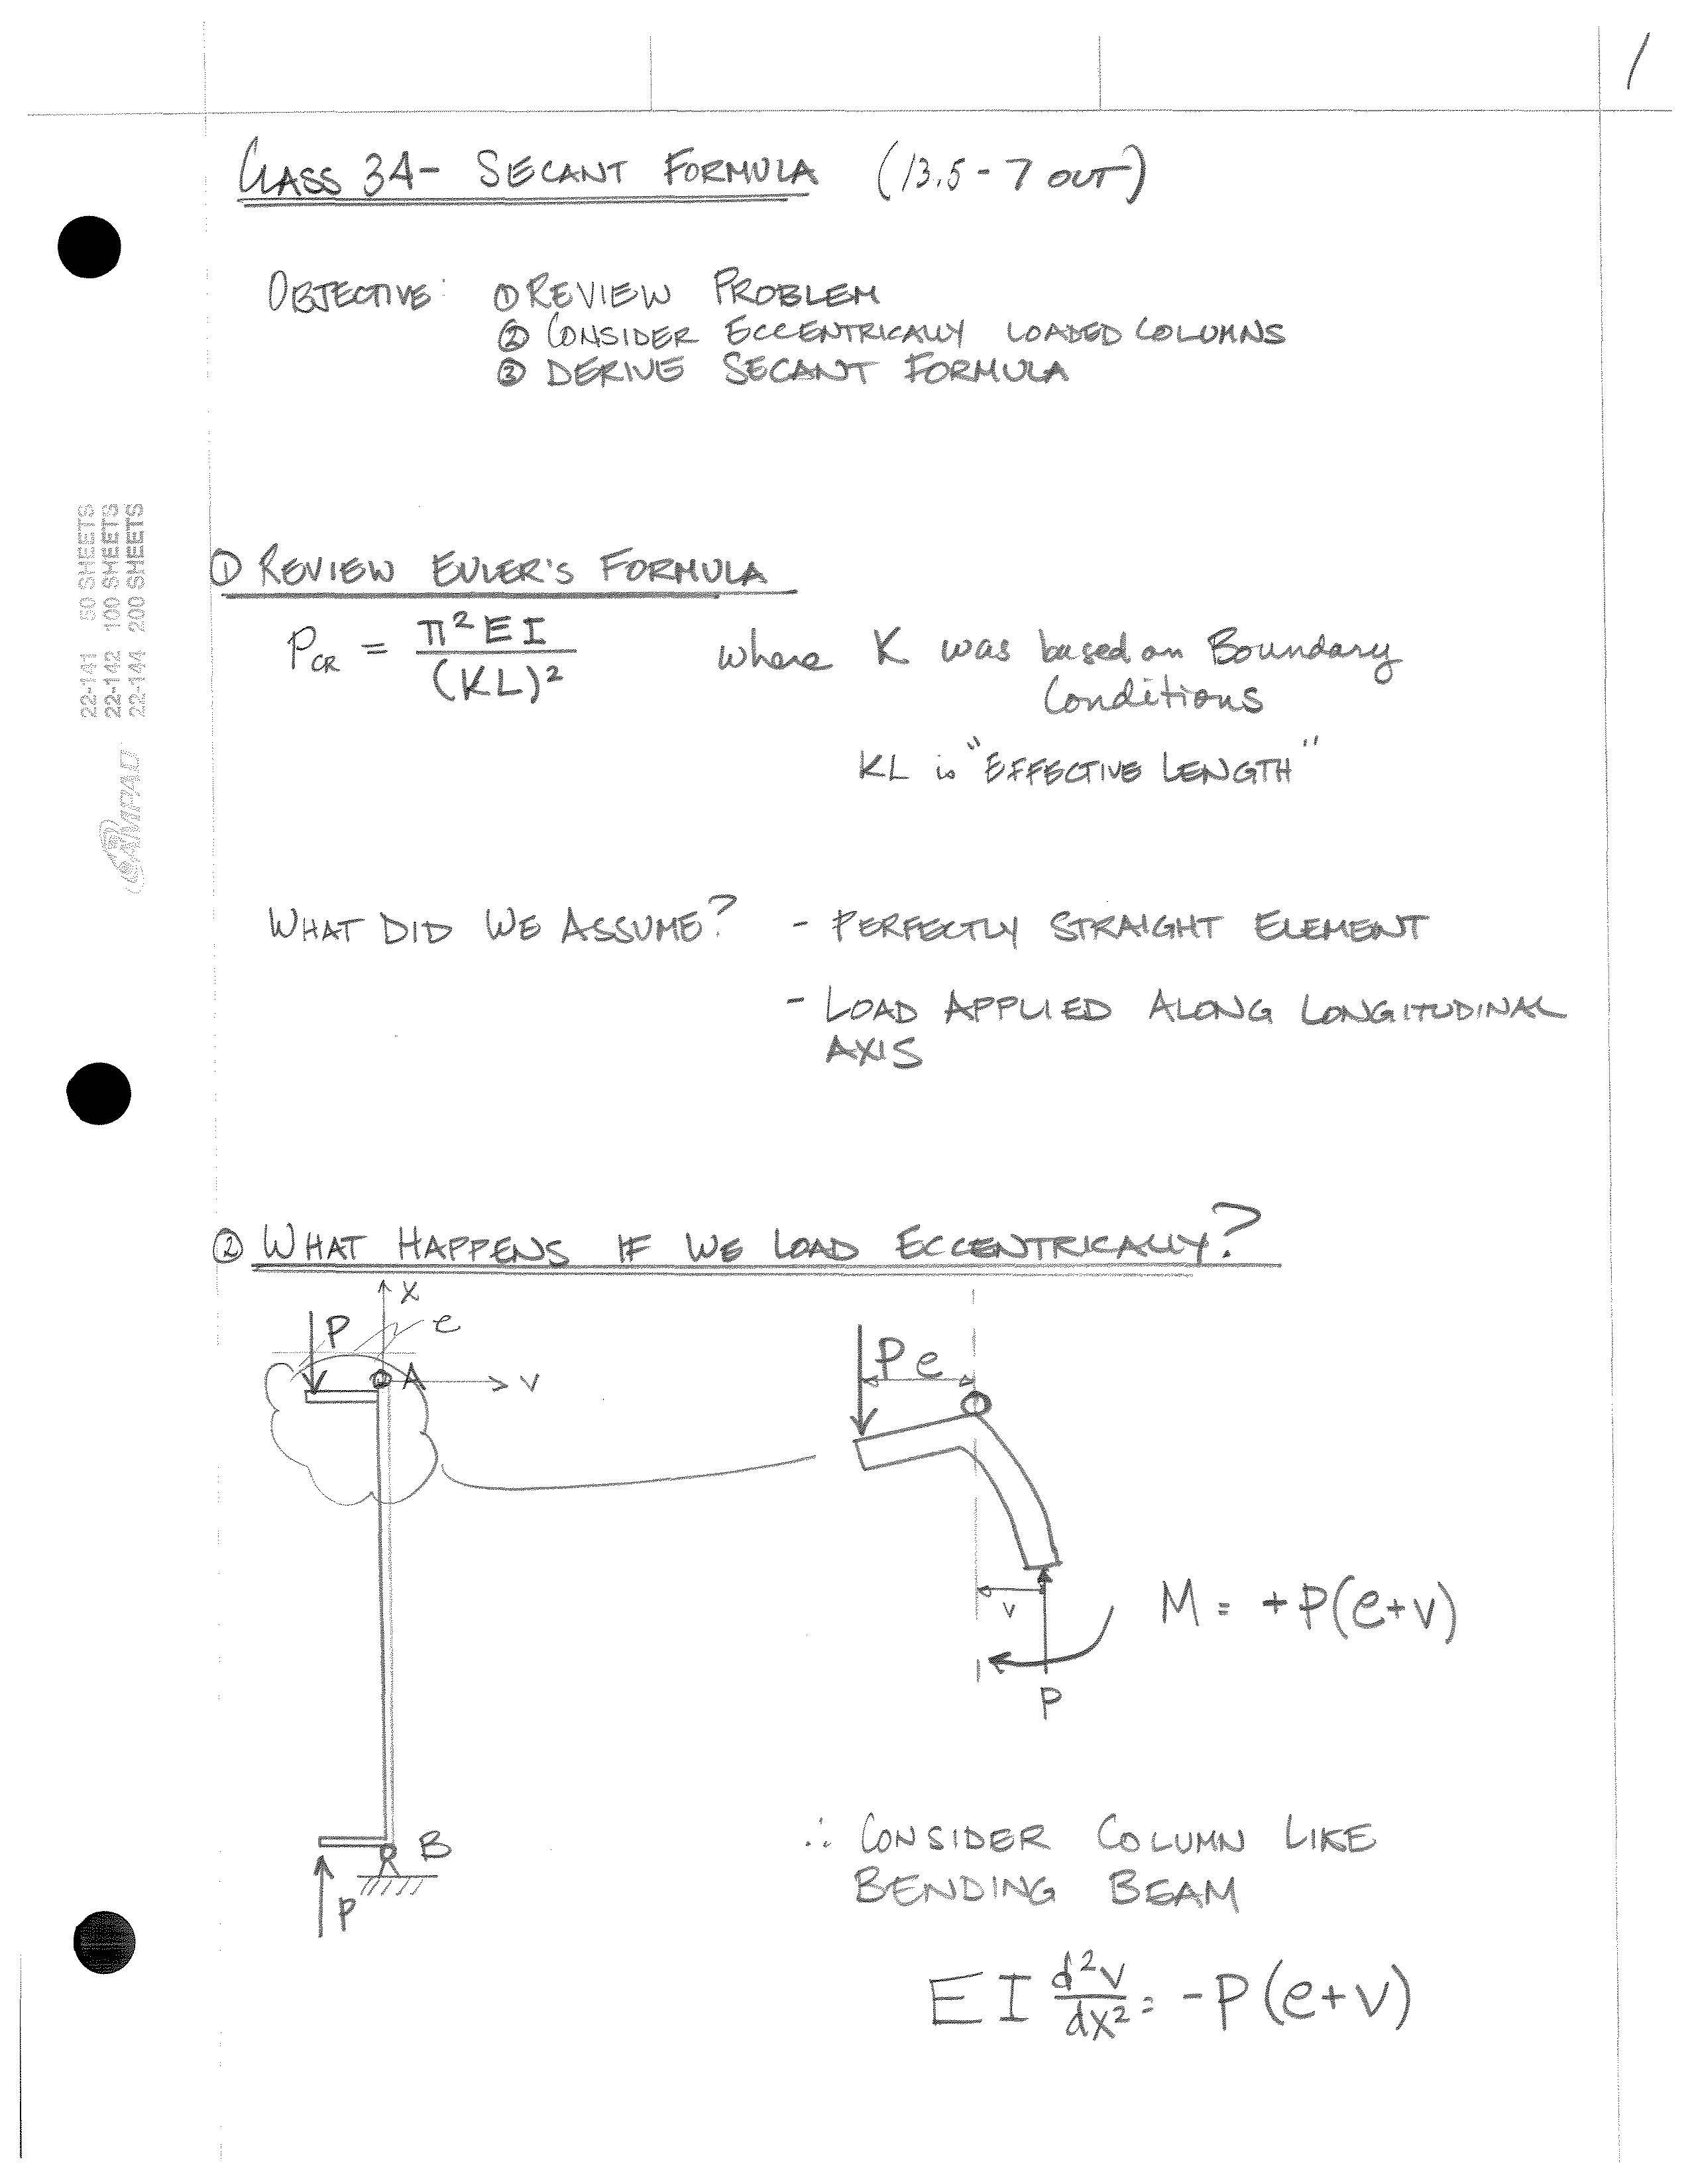 1
CLASS 34- SECANT FORMULA (13.5-7 OUT)
OBJECTIVE: ① REVIEW PROBLEM
② CONSIDER ECCENTRICALLY LOADED COLUMNS
③ DERIVE SECANT FORMULA
22-141 50 SHEETS
22-142 100 SHEETS
22-144 200 SHEETS
CAMPAD
① REVIEW EULER'S FORMULA
P_CR = π²EI / (KL)² where K was based on Boundary
Conditions
KL is "EFFECTIVE LENGTH"
WHAT DID WE ASSUME? - PERFECTLY STRAIGHT ELEMENT
- LOAD APPLIED ALONG LONGITUDINAL
AXIS
② WHAT HAPPENS IF WE LOAD ECCENTRICALLY?
X
P e
A v
P e
v
M = +P(e+v)
P
B
P
∴ CONSIDER COLUMN LIKE
BENDING BEAM
EI d²v/dx² = -P(e+v)